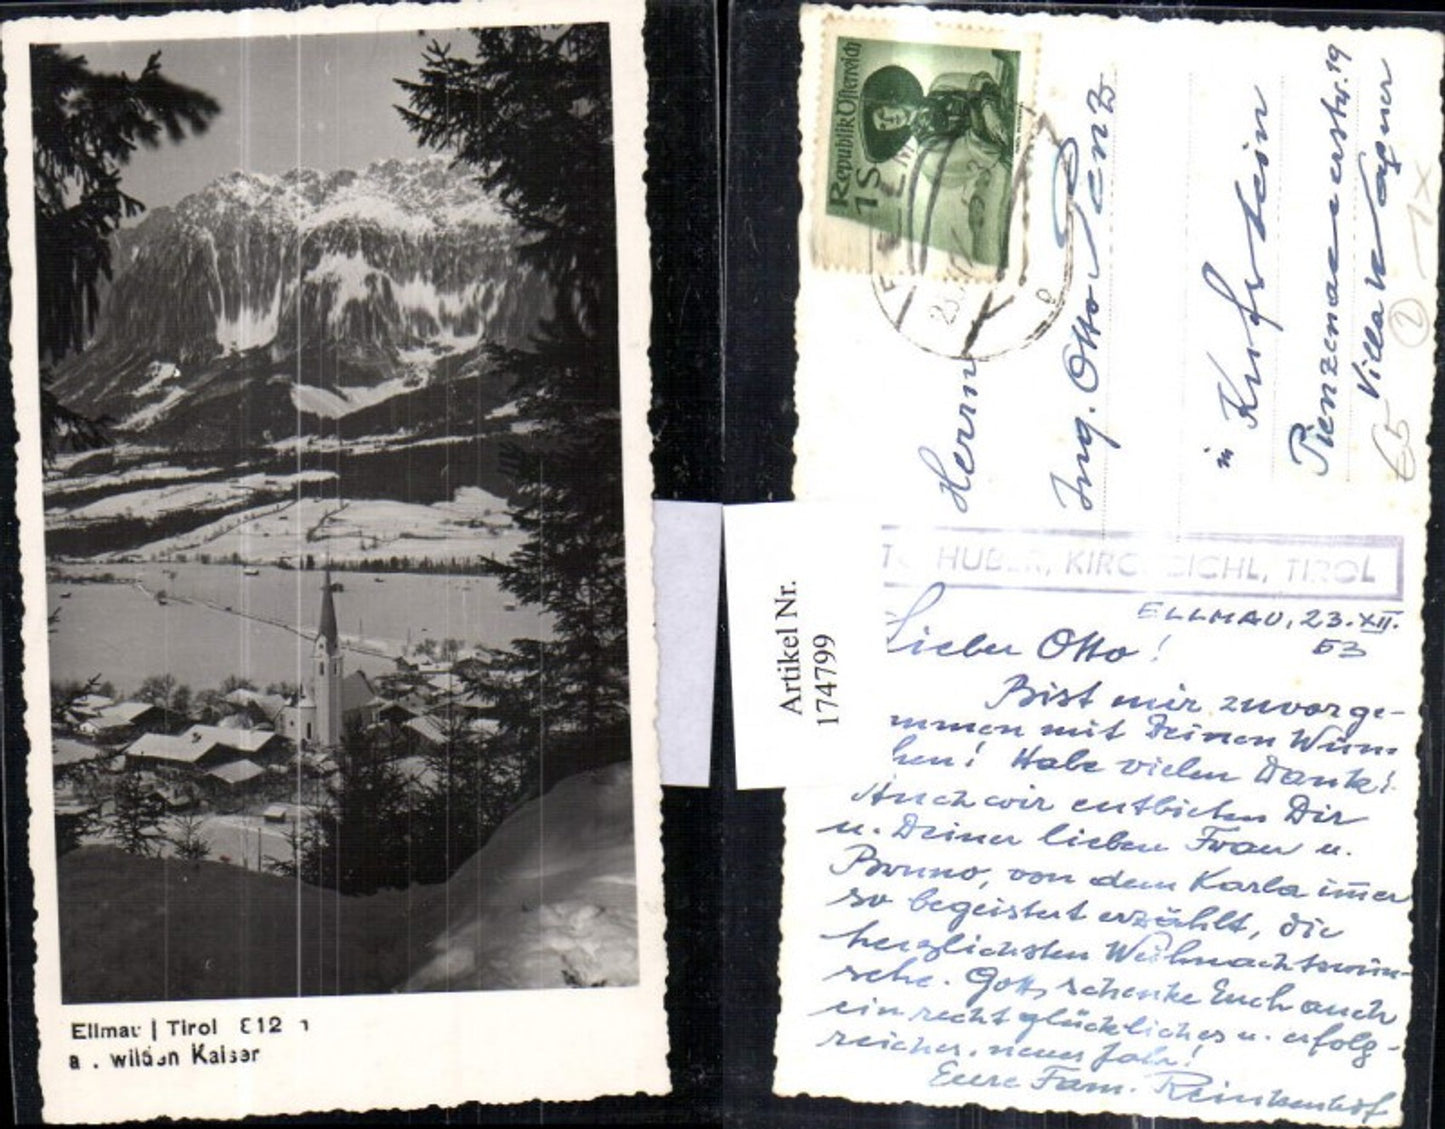 Ellmau | Tirol 812 m
a. wilden Kaiser
Artikel Nr.
174799
Republik Österreich
1S
Herrn
Ing. Otto Lenz
in Kufstein
Pienzenauerstr. 19
Villa Wagner
1x
2
€5
HUBER, KIRCHBICHL, TIROL
ELLMAU, 23. XII.
53
Lieber Otto!
Bist mir zuvorge-
mmen mit Deinen Wün
hen! Habe vielen Dank!
Auch wir entbieten Dir
u. Deiner lieben Frau u.
Bruno, von dem Karla immer
so begeistert erzählt, die
herzlichsten Weihnachtswün-
sche. Gott schenke Euch auch
ein recht glückliches u. erfolg-
reiches, neues Jahr!
Eure Fam. Reinkenhof